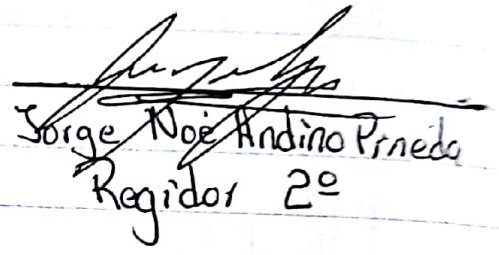 Jorge Noé Andino Pineda
Regidor 2º